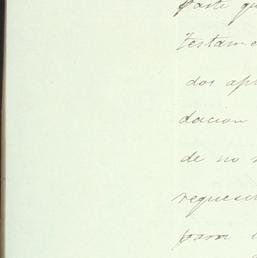 parte qu
testam
dos ap
dacion
de no
requesi
para